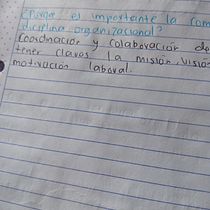 ¿Porque es importante la com
diciplina organizacional?
Coordinación y Colaboración de
tener claros la misión, visió
motivación laboral.